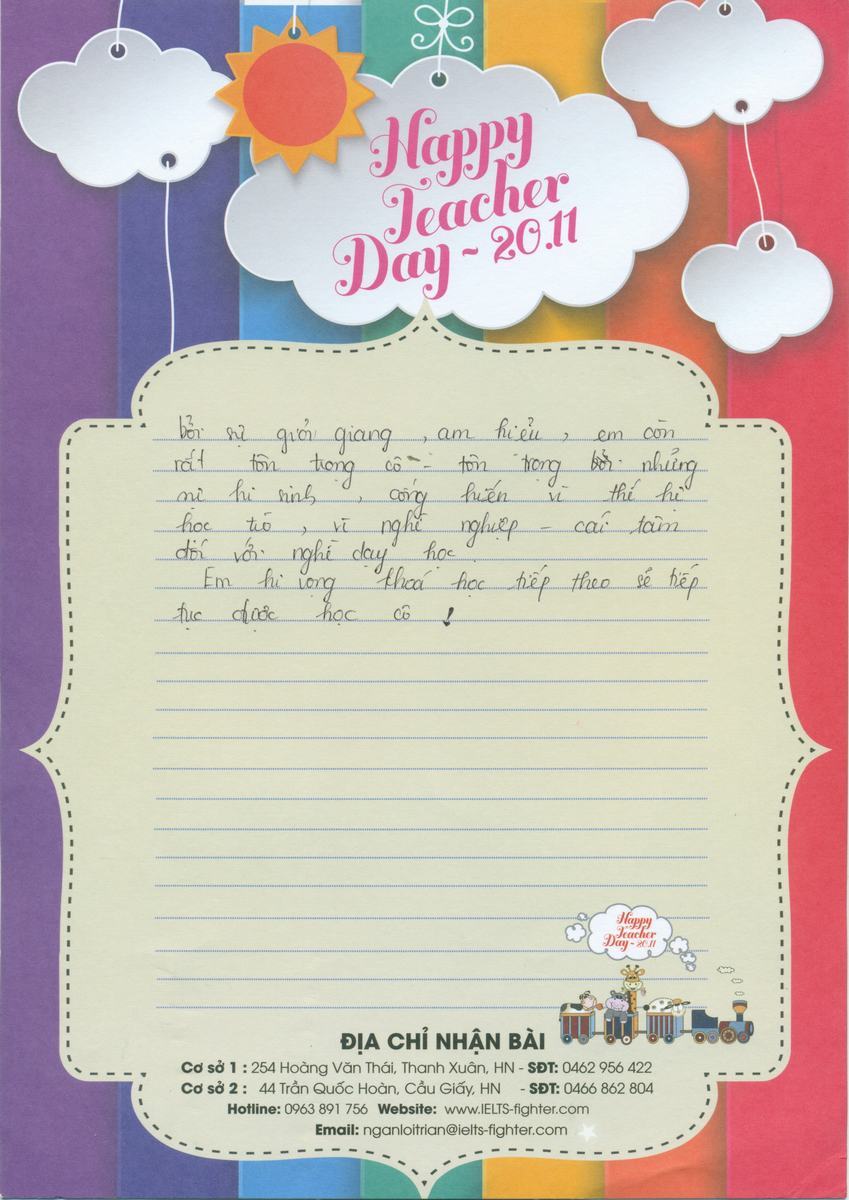 Happy
Teacher
Day ~ 20.11
bởi sự giỏi giang , am hiểu , em còn
rất tôn trọng cô - tôn trọng bởi những
sự hi sinh , cống hiến vì thế hệ
học trò , vì nghề nghiệp - cái tâm
đối với nghề dạy học .
Em hi vọng khoá học tiếp theo sẽ tiếp
tục được học cô !
Happy
Teacher
Day ~ 20.11
ĐỊA CHỈ NHẬN BÀI
Cơ sở 1 : 254 Hoàng Văn Thái, Thanh Xuân, HN - SĐT: 0462 956 422
Cơ sở 2 : 44 Trần Quốc Hoàn, Cầu Giấy, HN - SĐT: 0466 862 804
Hotline: 0963 891 756 Website: www.IELTS-fighter.com
Email: nganloitrian@ielts-fighter.com